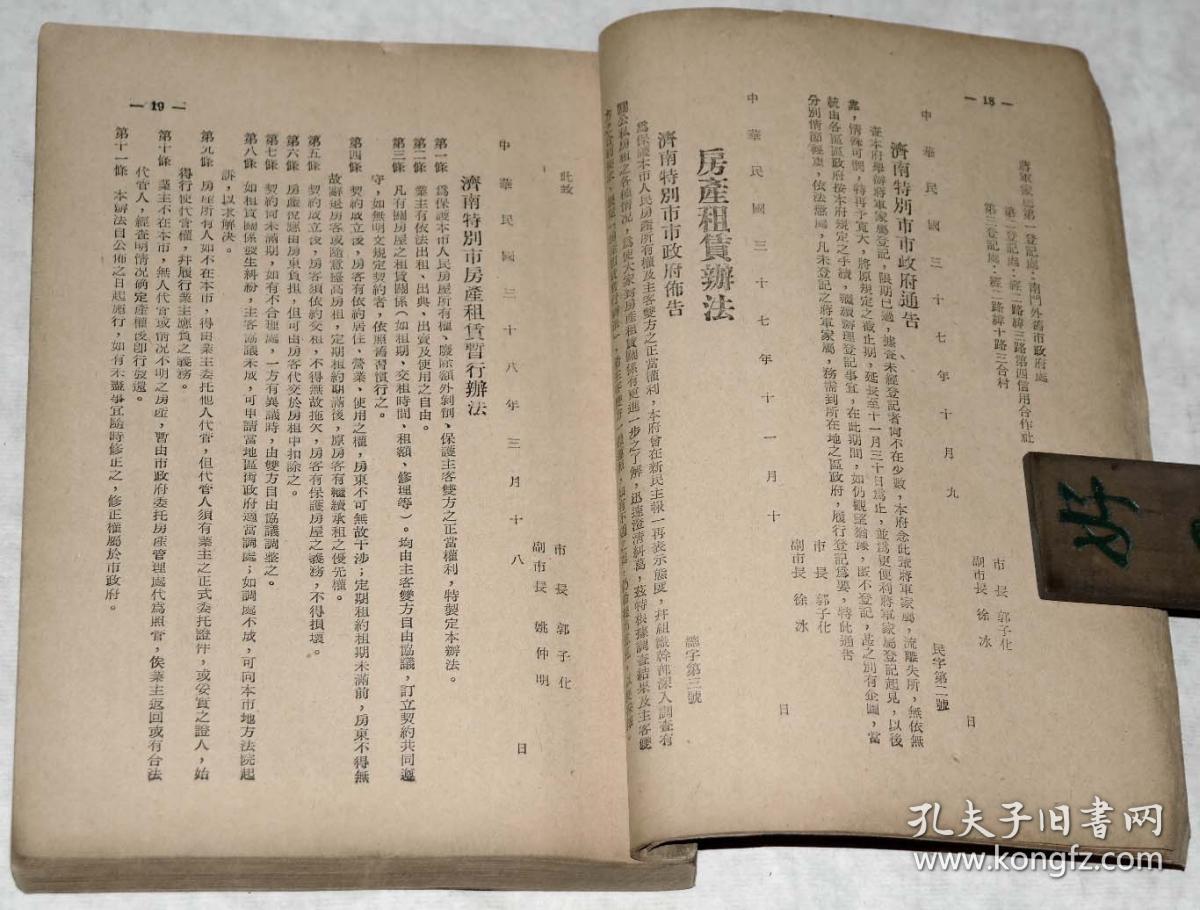 — 18 —
蔣軍家屬第一登記處：南門外舊市政府處
第二登記處：經二路緯三路第四信用合作社
第三登記處：經二路緯十路三合村
市長 郭子化
副市長 徐冰
中華民國三十七年十月九日
濟南特別市市政府通告
民字第二號
查本府舉辦蔣軍家屬登記，限期已過，據查未經登記者尚不在少數，本府念此等蔣軍家屬，流離失所，無依無
靠，情殊可憫，特再予寬大，將原規定之截止期，延長至十一月三十日爲止，並爲更便利蔣軍家屬登記起見，以後
統由各區區政府按本府規定之手續，繼續辦理登記事宜，在此期間，如仍觀望猶豫，既不登記，甚之別有企圖，當
分別情節輕重，依法懲處，凡未登記之蔣軍家屬，務需到所在地之區政府，履行登記爲要，特此通告
市長 郭子化
副市長 徐冰
中華民國三十七年十一月十日
房產租賃辦法
濟南特別市市政府佈告
總字第三號
爲保護本市人民房產所有權及主客雙方之正當權利，本府曾在新民主報一再表示態度，幷組織幹部深入調查有
關公私房租之各種情況，爲使大家對房產租賃關係有更進一步之了解，迅速澄清糾葛，茲特根據調查結果及主客雙
— 19 —
此致
市長 郭子化
副市長 姚仲明
中華民國三十八年三月十八日
濟南特別市房產租賃暫行辦法
第一條 爲保護本市人民房屋所有權、廢除額外剝削、保護主客雙方之正當權利，特製定本辦法。
第二條 業主有依法出租、出典、出賣及使用之自由。
第三條 凡有關房屋之租賃關係（如租期、交租時間、租額、修理等）。均由主客雙方自由協議，訂立契約共同遵
守，如無明文規定契約者，依照舊習慣行之。
第四條 契約成立後，房客有依約居住、營業、使用之權，房東不可無故干涉；定期租約租期未滿前，房東不得無
故辭退房客或隨意擡高房租，定期租約期滿後，原房客有繼續承租之優先權。
第五條 契約成立後，房客須依約交租，不得無故拖欠，房客有保護房屋之義務，不得損壞。
第六條 房產稅應由房東負担，但可由房客代交於房租中扣除之。
第七條 契約尚未滿期，如有不合理處，一方有異議時，由雙方自由協議調整之。
第八條 如租賃關係發生糾紛，主客協議未成，可申請當地區街政府適當調處；如調處不成，可向本市地方法院起
訴，以求解決。
第九條 房產所有人如不在本市，得由業主委托他人代管，但代管人須有業主之正式委托證件，或妥實之證人，始
得行使代管權，幷履行業主應負之義務。
第十條 業主不在本市，無人代管或情况不明之房產，暫由市政府委托房產管理處代爲照管，俟業主返回或有合法
代管人，經查明情况确定產權後卽行發還。
第十一條 本辦法自公佈之日起施行，如有未盡事宜隨時修正之，修正權屬於市政府。
好
孔夫子旧书网
www.kongfz.com